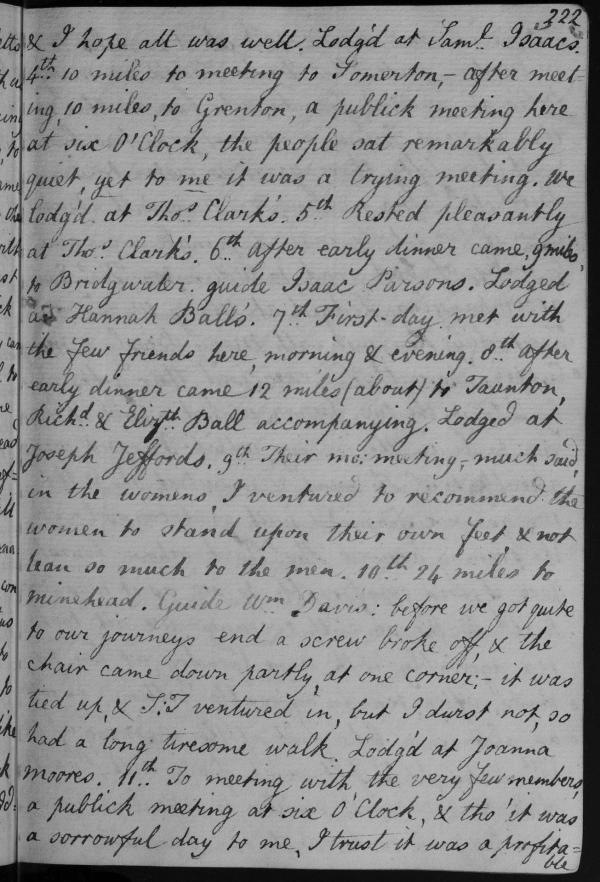 222
& I hope all was well. Lodg'd at Saml. Isaacs.
4th. 10 miles to meeting to Somerton, - after meet-
ing, 10 miles, to Grenton, a publick meeting here
at six O'Clock, the people sat remarkably
quiet, yet to me it was a trying meeting. We
lodg'd at Thos Clark's. 5th Rested pleasantly
at Thos Clark's. 6th after early dinner came, 9 miles,
to Bridgwater. guide Isaac Parsons. Lodged
at Hannah Ball's. 7th First-day met with
the few friends here, morning & evening. 8th after
early dinner came 12 miles (about) to Taunton,
Richd & Elizth Ball accompanying. Lodged at
Joseph Jeffords. 9th Their mo: meeting, - much said,
in the womens, I ventured to recommend the
women to stand upon their own feet, & not
lean so much to the men. 10th 24 miles to
minehead. Guide Wm Davis: before we got quite
to our journeys end a screw broke off, & the
chair came down partly, at one corner; - it was
tied up, & S:T ventured in, but I durst not, so
had a long tiresome walk. Lodg'd at Joanna
moores. 11th To meeting with the very few members,
a publick meeting at six O'Clock, & tho' it was
a sorrowful day to me, I trust it was a profita=
ble